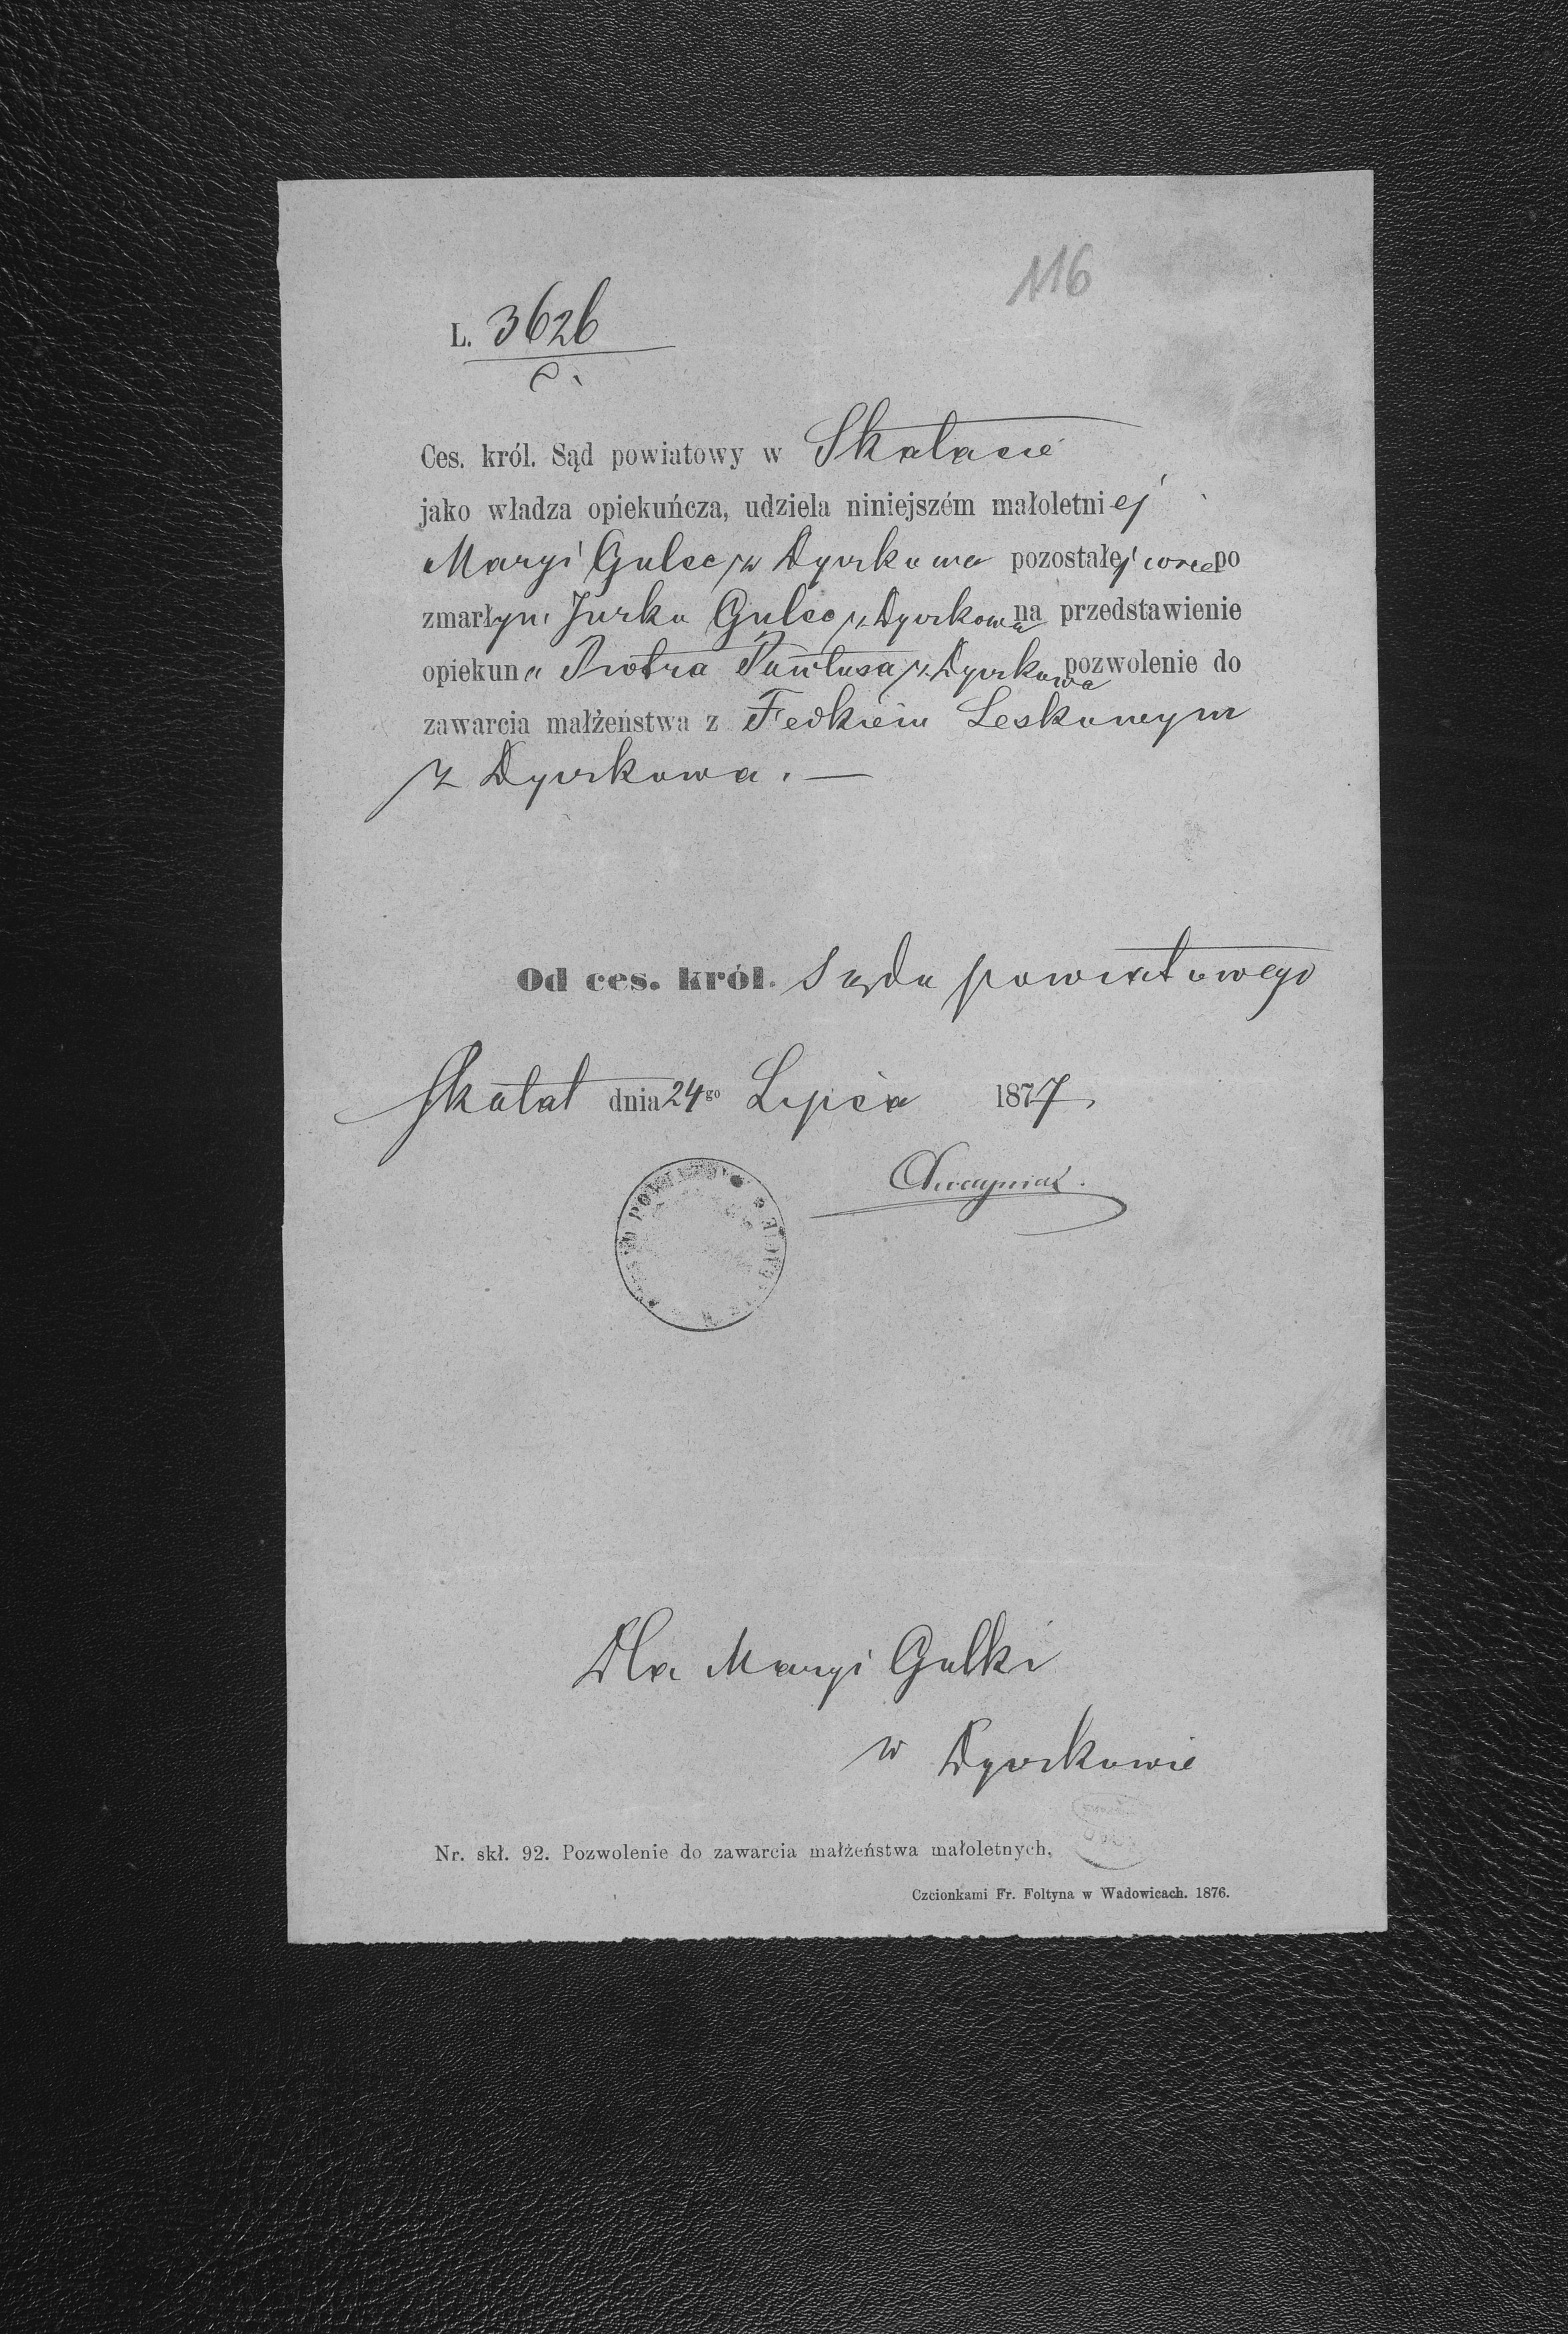 116
L. 3626
Ces. król. Sąd powiatowy w Skałacie
jako władza opiekuńcza, udziela niniejszém małoletniej
Maryi Gulce z Dyczkowa pozostałej córce po
zmarłym Jurku Gulce z Dyczkowa na przedstawienie
opiekuna Piotra z Dyczkowa pozwolenie do
zawarcia małżeństwa z Fedkiem Leskowym
z Dyczkowa. —
Od ces. król. Sądu powiatowego
Skałat dnia 24go Lipca 1877
Dla Maryi Gulki
w Dyczkowie
Nr. skł. 92. Pozwolenie do zawarcia małżeństwa małoletnych.
Czcionkami Fr. Foltyna w Wadowicach. 1876.